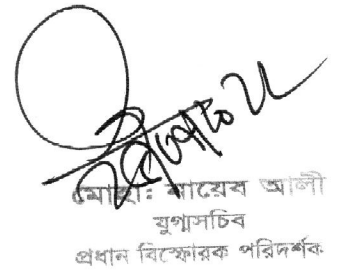 মোহা: নায়েব আলী
যুগ্মসচিব
প্রধান বিস্ফোরক পরিদর্শক